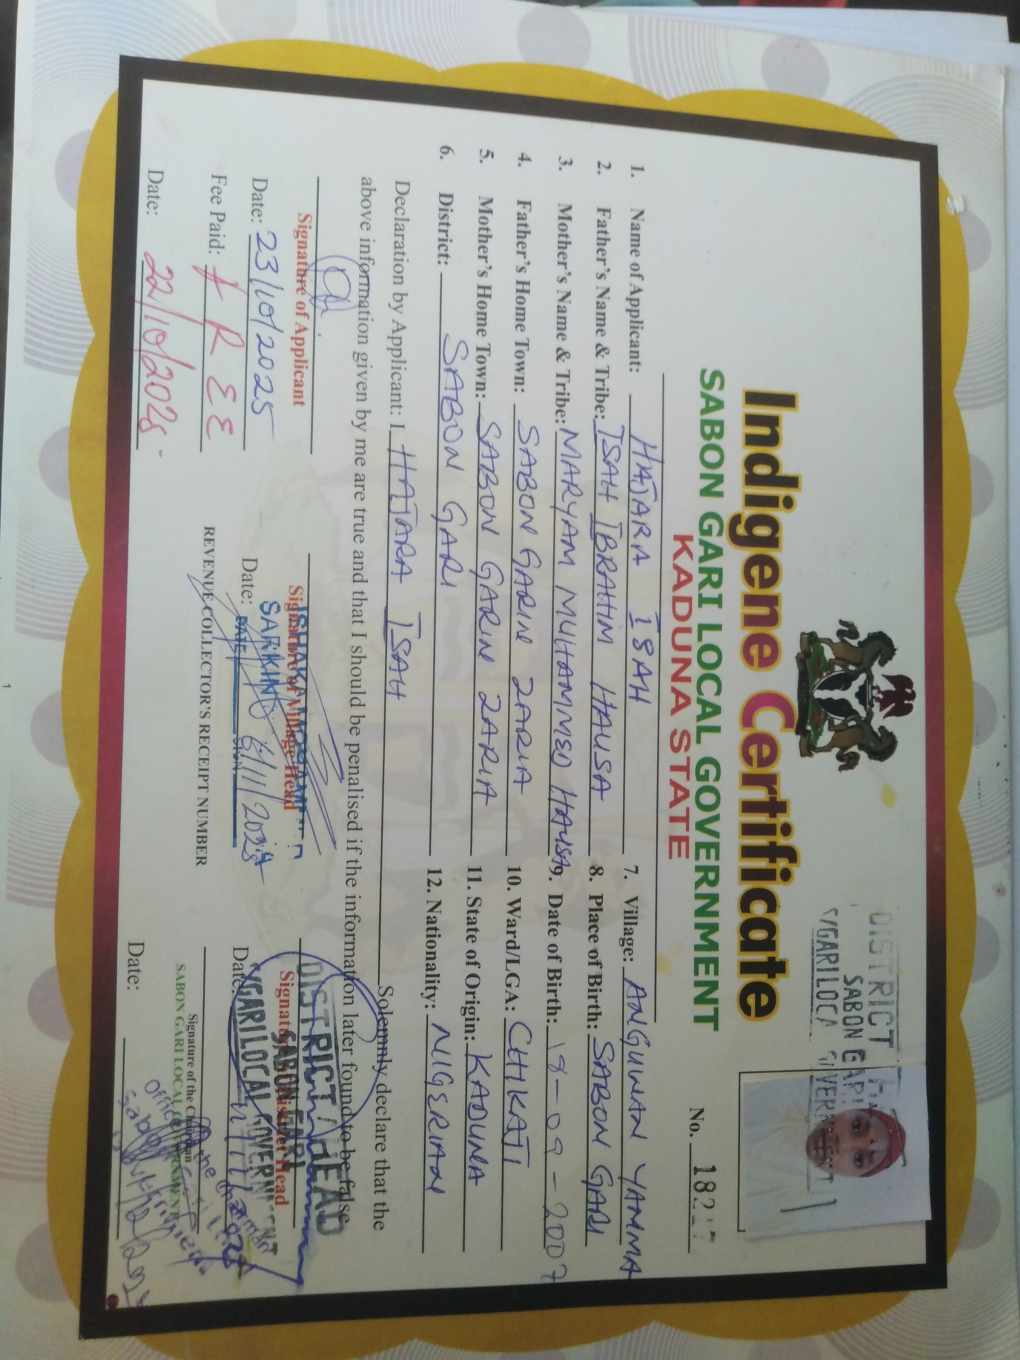 DISTRICT
SABON GARI
Indigene Certificate
SABON GARI LOCAL GOVERNMENT
KADUNA STATE
No.
1. Name of Applicant: HAJARA ISAH
2. Father's Name & Tribe: ISAH IBRAHIM HAUSA
3. Mother's Name & Tribe: MARYAM MUHAMMED HAUSA
4. Father's Home Town: SABON GARIN ZARIA
5. Mother's Home Town: SABON GARIN ZARIA
6. District: SABON GARI
7. Village: ANGUWAN YAMMA
8. Place of Birth: SABON GARI
9. Date of Birth: 18-09-2007
10. Ward/LGA: CHIKAJI
11. State of Origin: KADUNA
12. Nationality: NIGERIAN
Declaration by Applicant: I HAJARA ISAH Solemnly declare that the
above information given by me are true and that I should be penalised if the information later found to be false
Signature of Applicant
Date: 23/10/2025
Fee Paid: FREE
Date: 22/10/2025
Signature of Village Head
SARKIN
Date:
REVENUE COLLECTOR'S RECEIPT NUMBER
DISTRICT HEAD
SABON GARI
Signature of District Head
Date:
Signature of the Chairman
SABON GARI LOCAL GOVERNMENT
Date: